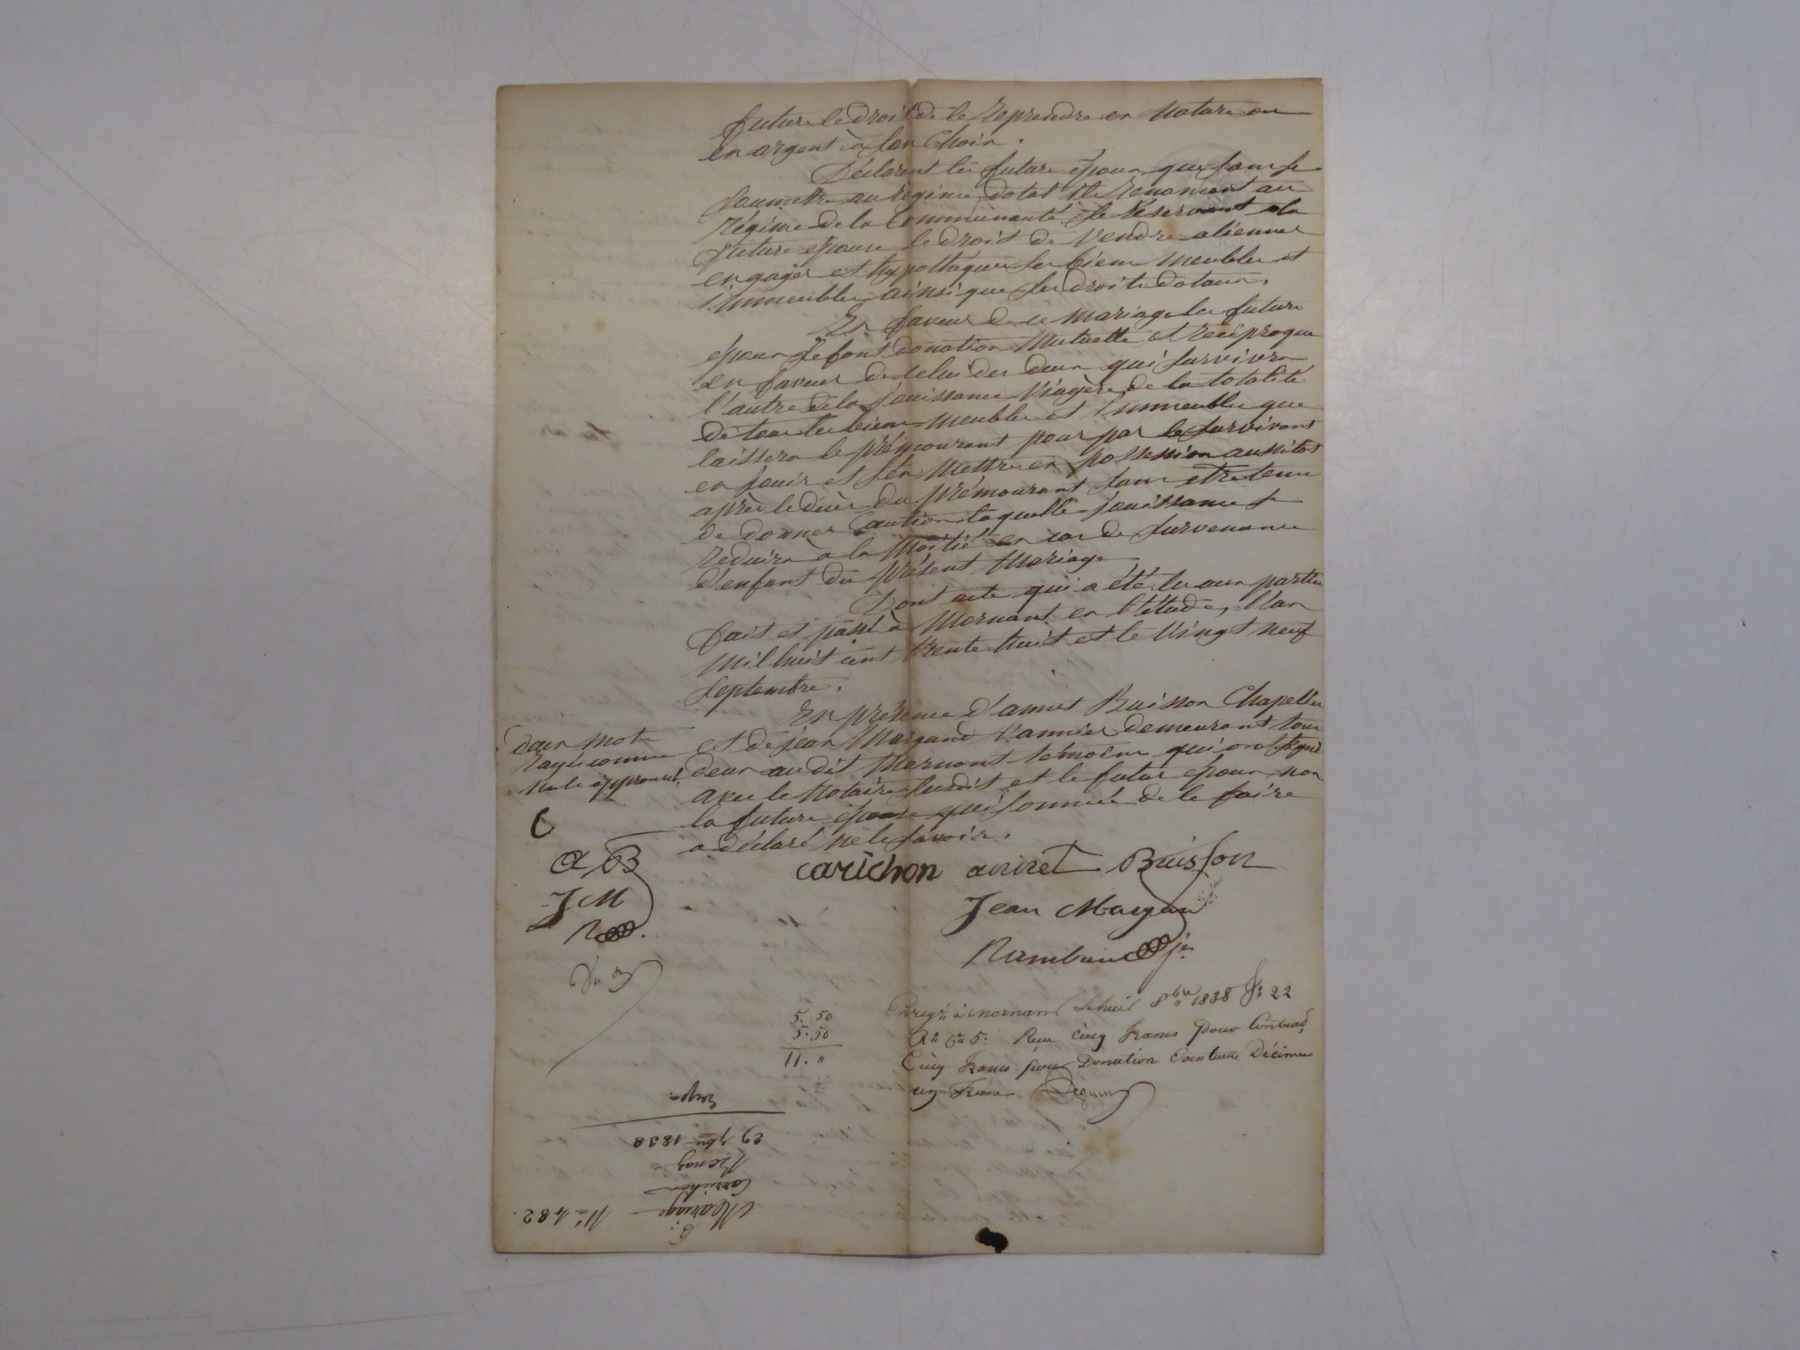 future le droit de le reprendre en Nature ou
en argent à son Choix.
Déclarent les futurs époux que sans se
soumettre au régime dotal ils renoncent au
régime de la Communauté se réservant la
future épouse le droit de Vendre aliener
engager et hypothéquer ses biens meubles et
immeubles ainsi que ses droits dotaux.
En faveur de ce mariage les futurs
époux se font donation Mutuelle et réciproque
en faveur de celui des deux qui survivra
l'autre de la jouissance Viagère de la totalité
de tous les biens meubles et immeubles que
laissera le prémourant pour par le survivant
en jouir et s'en Mettre en possession aussitôt
après le décès du prémourant sans être tenu
de donner Caution laquelle jouissance se
réduira à la Moitié en cas de Survenance
d'enfant du présent Mariage
Dont acte qui a été lu aux parties
fait et passé à Mornant en l'étude, l'an
Mil huit cent trente huit et le Vingt neuf
Septembre.
En présence d'annet Buisson Chapellier
et de jean Margand Vannier demeurant tous
deux audit Mornant témoins qui ont signé
avec le Notaire susdit et le futur époux, non
la future épouse qui sommée de le faire
a déclaré ne le savoir.
Deux Mots
rayés comme
Nuls approuvé
AB
JM
R
carichon annet Buisson
Jean Margan
Rambaud je
5. 50
5. 50
11. "
Enregré à mornant le huit 8bre 1838 fo 22
Ro Ce 5. Reçu cinq francs pour Contrat,
Cinq francs pour Donation Eventuelle Décime
un franc
Exp
29 7bre 1838
Carrichon
Mariage
No 482.